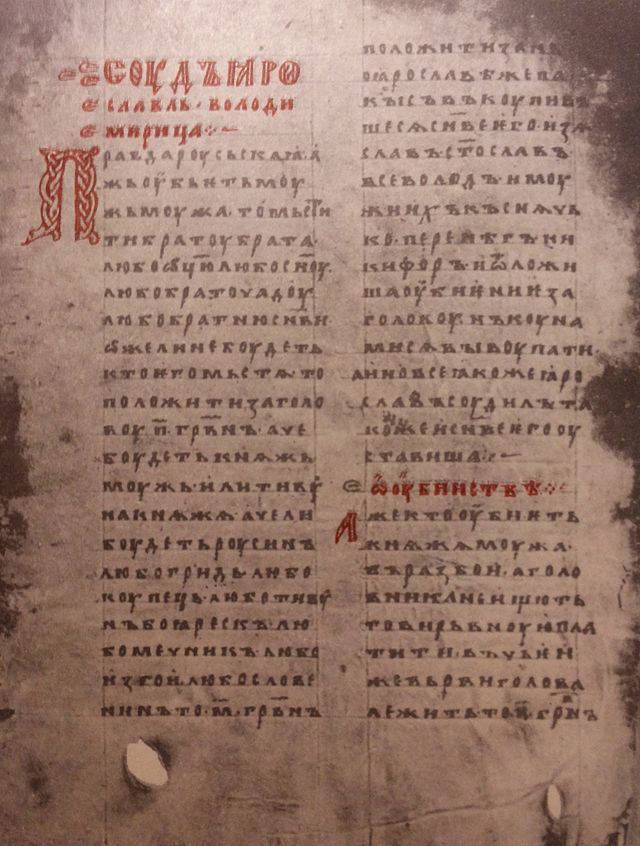 СОУДЪ ꙖРО
СЛАВЛЬ · ВОЛОДИ
МИРИЦА
Правда роусьскаꙗ · а
жь оубьѥть моу
жь моужа · то мьстити
ти братоу брата ·
любо ѿцю любо сн҃оу ·
любо братоучадоу ·
любо братню сн҃ви ·
ѡже ли не боудеть
кто ѥго мьстѧ то
положити за голо
воу · п҃ · грв҃нъ · аче
боудеть кнѧжь
моужь или тивоу
на кнѧжѧ · аче ли
боудеть роусинъ
любо гридь · любо
коупець · любо тивоу
нъ боꙗрескъ · лю
бо мечникъ · любо
изгои · любо слове
нинъ то · м҃ · грв҃нъ
положити за нь ·
по ꙗрославѣ же па
кы съвъкоупивъ
шесѧ сн҃ве ѥго · изѧ
славъ · ст҃ославъ ·
всеволодъ · и моу
жи ихъ · къснѧчь
ко · перенѣгъ · ни
кифоръ · и ѿложи
ша оубиѥниѥ за
головоу · нъ коуна
ми сѧ выкоупати ·
а ино все ꙗкоже ꙗро
славъ соудилъ · та
коже и сн҃ве ѥго оу
ставиша ·
ѡ оубииствѣ
Аже кто оубиѥть
кнѧжѧ моужа ·
въ разбои · а голо
вника не ищють
то вирьвноую пла
тити · въ чьѥи
же вьрви голова
лежить то · п҃ · грв҃нъ